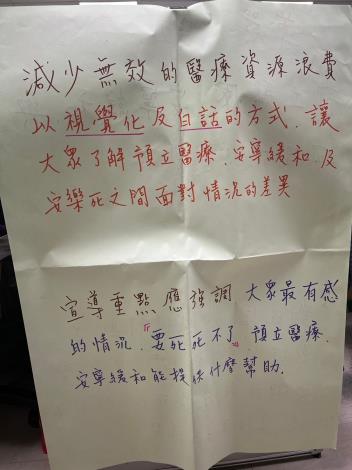 減少無效的醫療資源浪費
以視覺化及白話的方式,讓
大眾了解預立醫療、安寧緩和、及
安樂死之間面對情況的差異
宣導重點應強調大眾最有感
的情況、『要死死不了』預立醫療、
安寧緩和能提供什麼幫助.